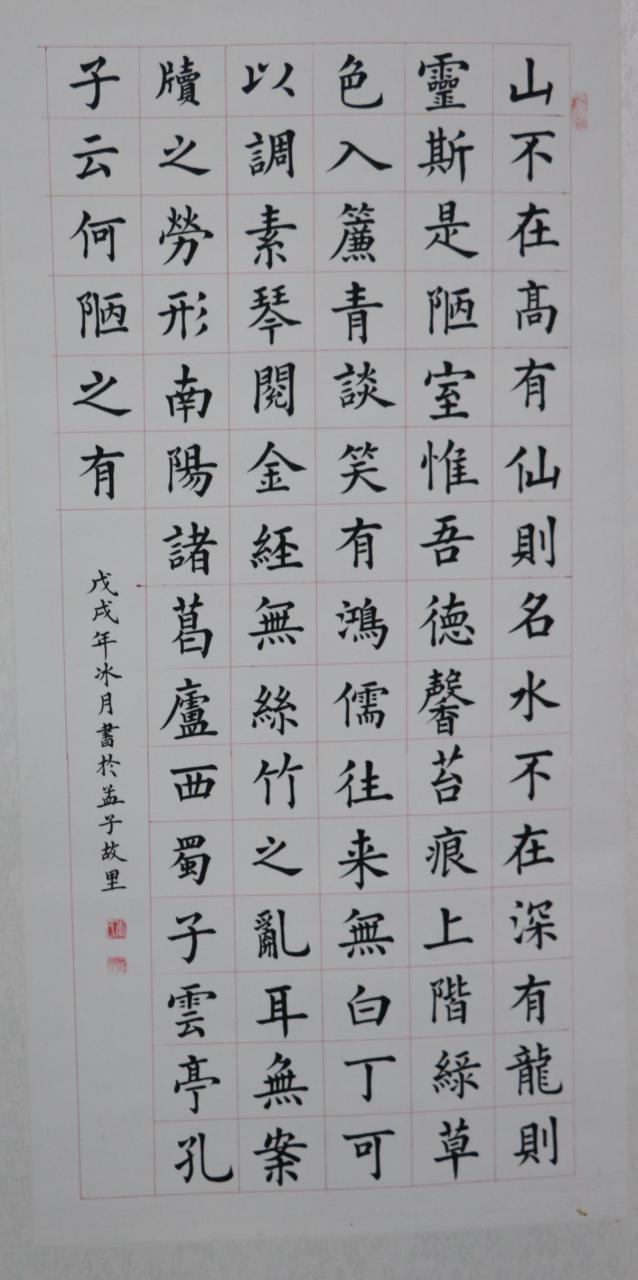 山不在高有仙則名水不在深有龍則
靈斯是陋室惟吾德馨苔痕上階綠草
色入簾青談笑有鴻儒往来無白丁可
以調素琴閱金經無絲竹之亂耳無案
牘之勞形南陽諸葛廬西蜀子雲亭孔
子云何陋之有
戊戌年冰月書於孟子故里